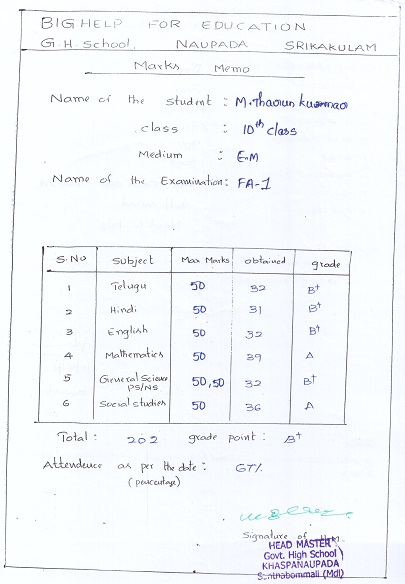 BIGHELP FOR EDUCATION
G.H.School, NAUPADA SRIKAKULAM
Marks Memo
Name of the Student : M.Tharun kumar
class : 10th class
Medium : E.M
Name of the Examination: FA-1
S.No Subject Max Marks obtained grade
1 Telugu 50 32 B+
2 Hindi 50 31 B+
3 English 50 32 B+
4 Mathematics 50 39 A
5 General Science PS/NS 50,50 32 B+
6 Social studies 50 36 A
Total : 202 grade point : B+
Attendence as per the date : 67%
(percentage)
Signature of
HEAD MASTER
Govt. High School
KHASPANAUPADA
Santhabommali (Mdl)